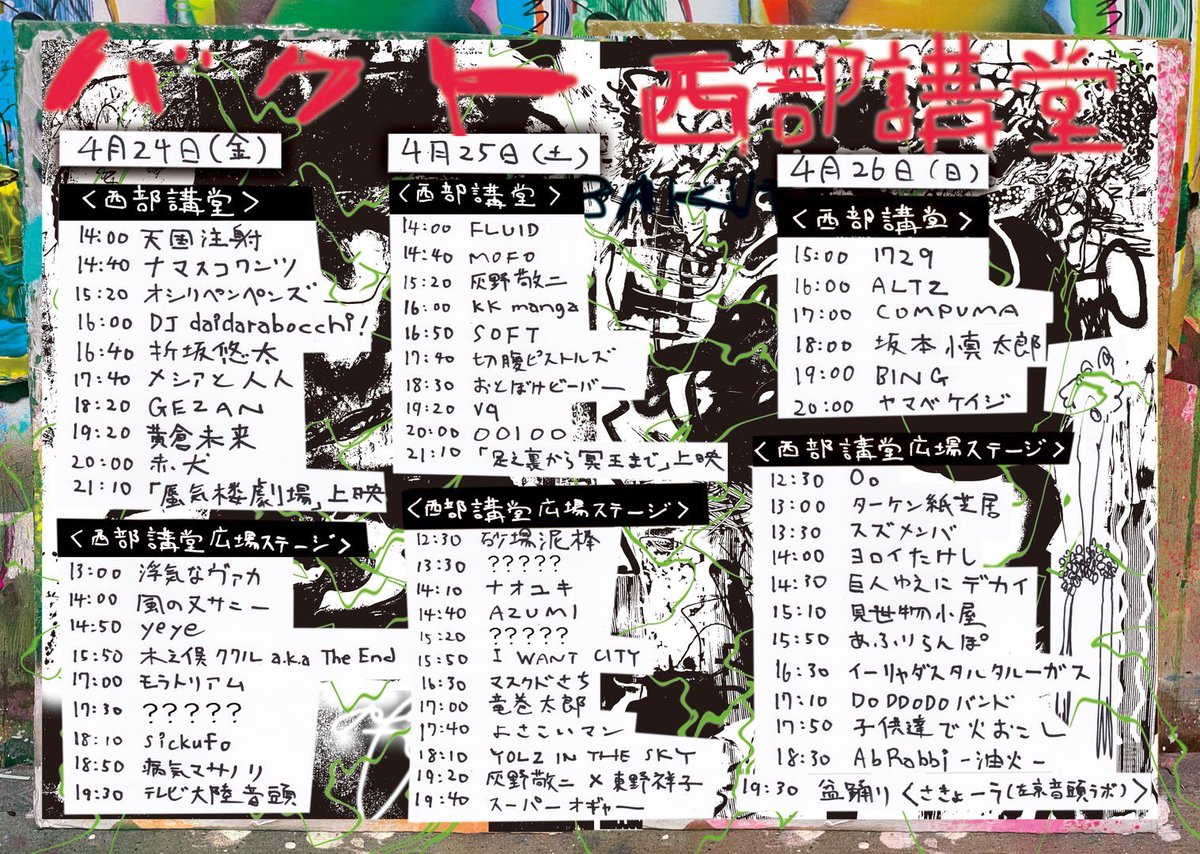 バクト 西部講堂
4月24日(金)
<西部講堂>
14:00 天国注射
14:40 ナマスコワンツ
15:20 オシリペンペンズ
16:00 DJ daidarabocchi!
16:40 折坂悠太
17:40 メシアと人人
18:20 GEZAN
19:20 黄倉未来
20:00 赤犬
21:10 「蜃気楼劇場」上映
<西部講堂広場ステージ>
13:00 浮気なヴァカ
14:00 風の又サニー
14:50 yeye
15:50 木之俣ククル a.k.a The End
17:00 モラトリアム
17:30 ?????
18:10 sickufo
18:50 病気マサノリ
19:30 テレビ大陸音頭
4月25日(土)
<西部講堂>
14:00 FLUID
14:40 MOFO
15:20 灰野敬二
16:00 KK manga
16:50 SOFT
17:40 切腹ピストルズ
18:30 おとぼけビ〜バ〜
19:20 vq
20:00 OO1OO
21:10 「足之裏から冥王まで」上映
<西部講堂広場ステージ>
12:30 砂場泥棒
13:30 ?????
14:10 ナオユキ
14:40 AZUMI
15:20 ?????
15:50 I WANT CITY
16:30 マスクドさち
17:00 竜巻太郎
17:40 よさこいマン
18:10 YOLZ IN THE SKY
19:20 灰野敬二×東野祥子
19:40 スーパーオギャー
BAKUT
4月26日(日)
<西部講堂>
15:00 1729
16:00 ALTZ
17:00 COMPUMA
18:00 坂本慎太郎
19:00 BING
20:00 ヤマベケイジ
<西部講堂広場ステージ>
12:30 Oo
13:00 ターケン紙芝居
13:30 スズメンバ
14:00 ヨロイたけし
14:30 巨人ゆえにデカイ
15:10 見世物小屋
15:50 あふりらんぽ
16:30 イーリャダスタルタルーガス
17:10 DoDDoDoバンド
17:50 子供達で火おこし
18:30 AbRabbi-油火-
19:30 盆踊り <さきょーラ(左京音頭ラボ)>